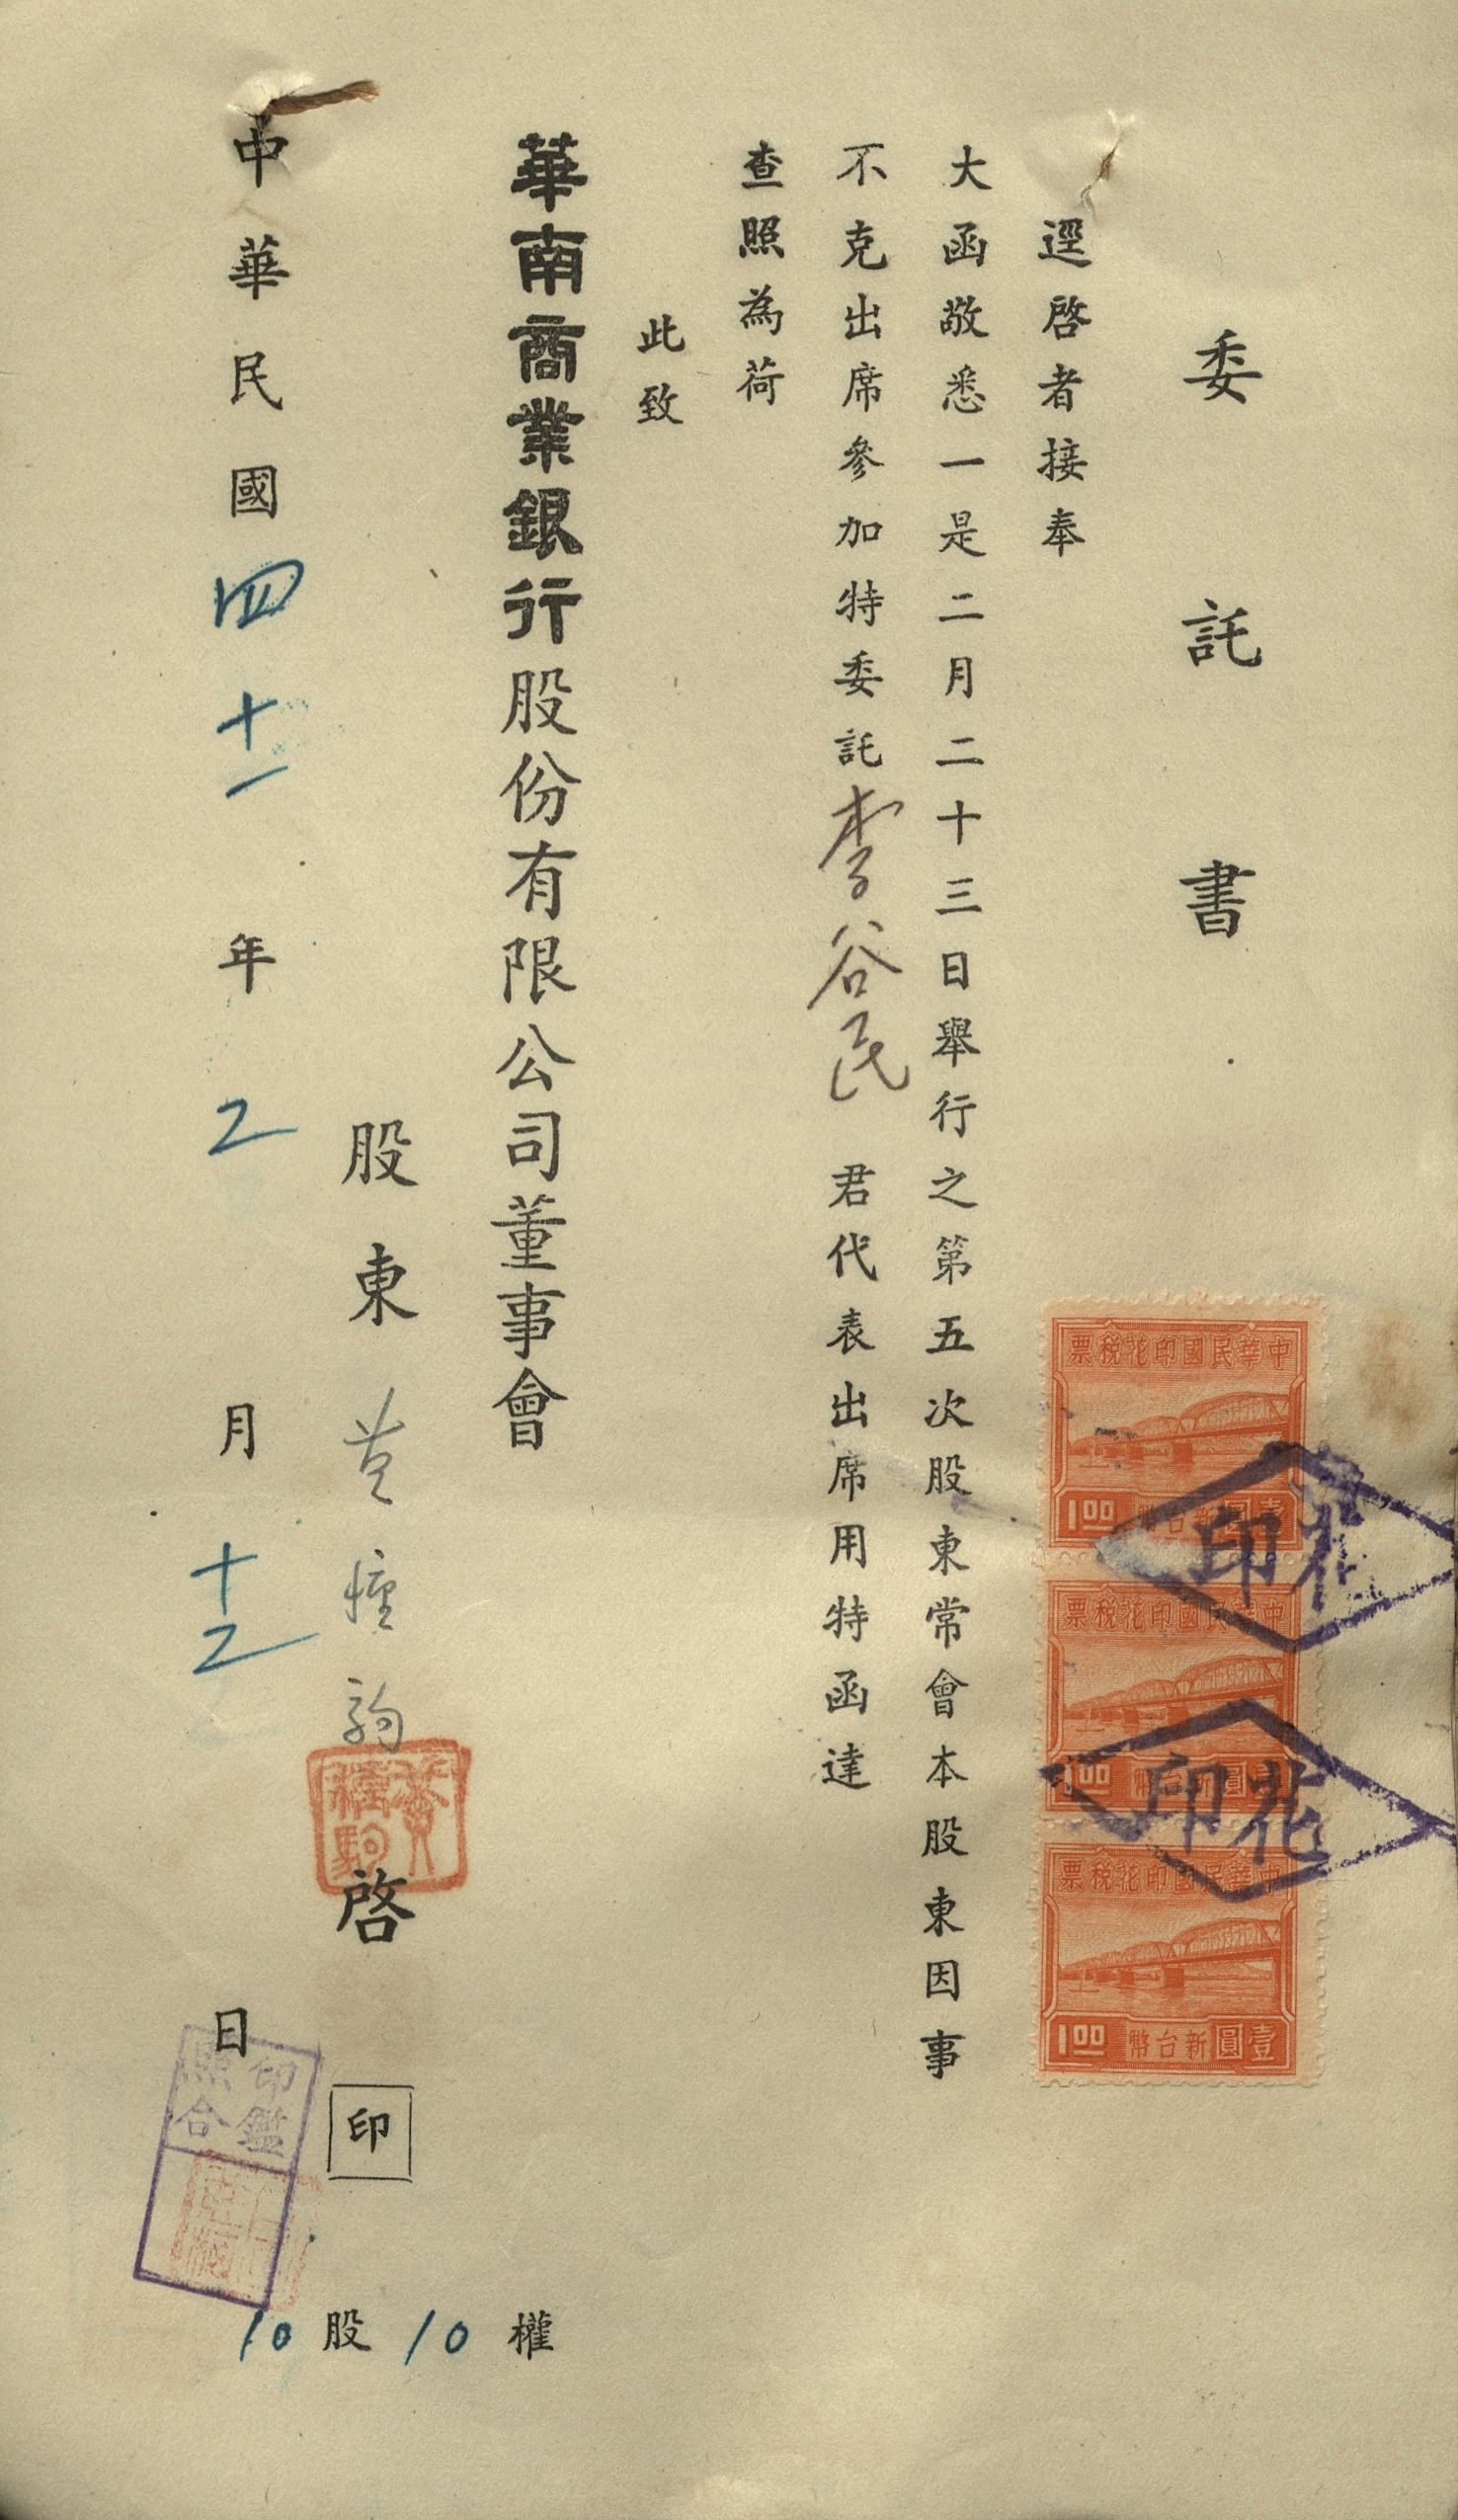 委託書
逕啓者接奉
大函敬悉一是二月二十三日舉行之第五次股東常會本股東因事
不克出席參加特委託李谷民君代表出席用特函達
查照為荷
此致
華南商業銀行股份有限公司董事會
股東黃種駒啓 印
中華民國四十一年2月十二日
10股10權
中華民國印花稅票
1.00 壹圓新台幣
花印
中華民國印花稅票
1.00 壹圓新台幣
花印
中華民國印花稅票
1.00 壹圓新台幣
黃種駒
印鑑照合